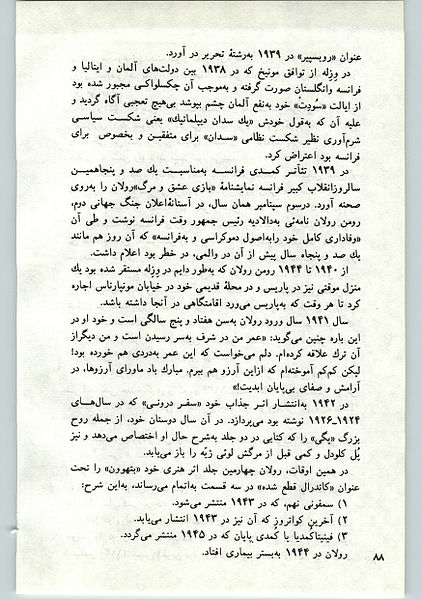 عنوان «روبسپیر» در ۱۹۳۹ به‌رشتهٔ تحریر در آورد.
در وزله از توافق مونیخ که در ۱۹۳۸ بین دولت‌های آلمان و ایتالیا و
فرانسه وانگلستان صورت گرفته و به‌موجب آن چکسلواکی مجبور شده بود
از ایالت «سُودِت» خود به‌نفع آلمان چشم بپوشد بی‌هیچ تعجبی آگاه گردید و
علیه آن که به‌قول خودش «یك سدان دیپلماتیك» یعنی شکست سیاسی
شرم‌آوری نظیر شکست نظامی «سدان» برای متفقین و بخصوص برای
فرانسه بود اعتراض کرد.
در ۱۹۳۹ تئآتر کمدی فرانسه به‌مناسبت یك صد و پنجاهمین
سالروزانقلاب کبیر فرانسه نمایشنامهٔ «بازی عشق و مرگ»رولان را به‌روی
صحنه آورد. درسوم سپتامبر همان سال، در آستانهٔ‌اعلان جنگ جهانی دوم،
رومن رولان نامه‌ئی به‌دالادیه رئیس جمهور وقت فرانسه نوشت و طی آن
«وفاداری کامل خود رابه‌اصول دموکراسی و به‌فرانسه» که آن روز هم مانند
یك صد و پنجاه سال پیش از آن در والمی، در خطر بود اعلام داشت.
از ۱۹۴۰ تا ۱۹۴۴ رومن رولان که به‌طور دایم در وزله مستقر شده بود یك
منزل موقتی نیز در پاریس و در محلهٔ قدیمی خود در خیابان مونپارناس اجاره
کرد تا هر وقت که به‌پاریس می‌ورد اقامتگاهی در آنجا داشته باشد.
سال ۱۹۴۱ سال ورود رولان به‌سن هفتاد و پنج سالگی است و خود او در
این باره چنین می‌گوید: «عمر من در شرف به‌سر رسیدن است و من دیگراز
آن ترك علاقه کرده‌ام. دلم می‌خواست که این عمر به‌دردی هم خورده بود!
لیکن کم‌کم آموخته‌ام که ازاین آرزو هم ببرم. مبارك باد ماورای آرزوها، در
آرامش و صفای بی‌پایان ابدیت!»
در ۱۹۴۲ به‌انتشار اثر جذاب خود «سفر درونی» که در سال‌های
۱۹۲۴ـ۱۹۲۶ نوشته بود می‌پردازد. در آن سال دوستان خود، از جمله روح
بزرگ «پگی» را که کتابی در دو جلد به‌شرح حال او اختصاص می‌دهد و نیز
پُل کلودل و کمی قبل از مرگش لوئی ژیّه را باز می‌یابد.
در همین اوقات، رولان چهارمین جلد اثر هنری خود «بتهوون» را تحت
عنوان «کاتدرال قطع شده» در سه قسمت به‌اتمام می‌رساند، به‌این شرح:
۱) سمفونی نهم، که در ۱۹۴۳ منتشر می‌شود.
۲) آخرین کواتروز که آن نیز در ۱۹۴۳ انتشار می‌یابد.
۳) فینیتاکمدیا یا کمدی پایان که در ۱۹۴۵ منتشر می‌گردد.
رولان در ۱۹۴۴ به‌بستر بیماری افتاد.
۸۸